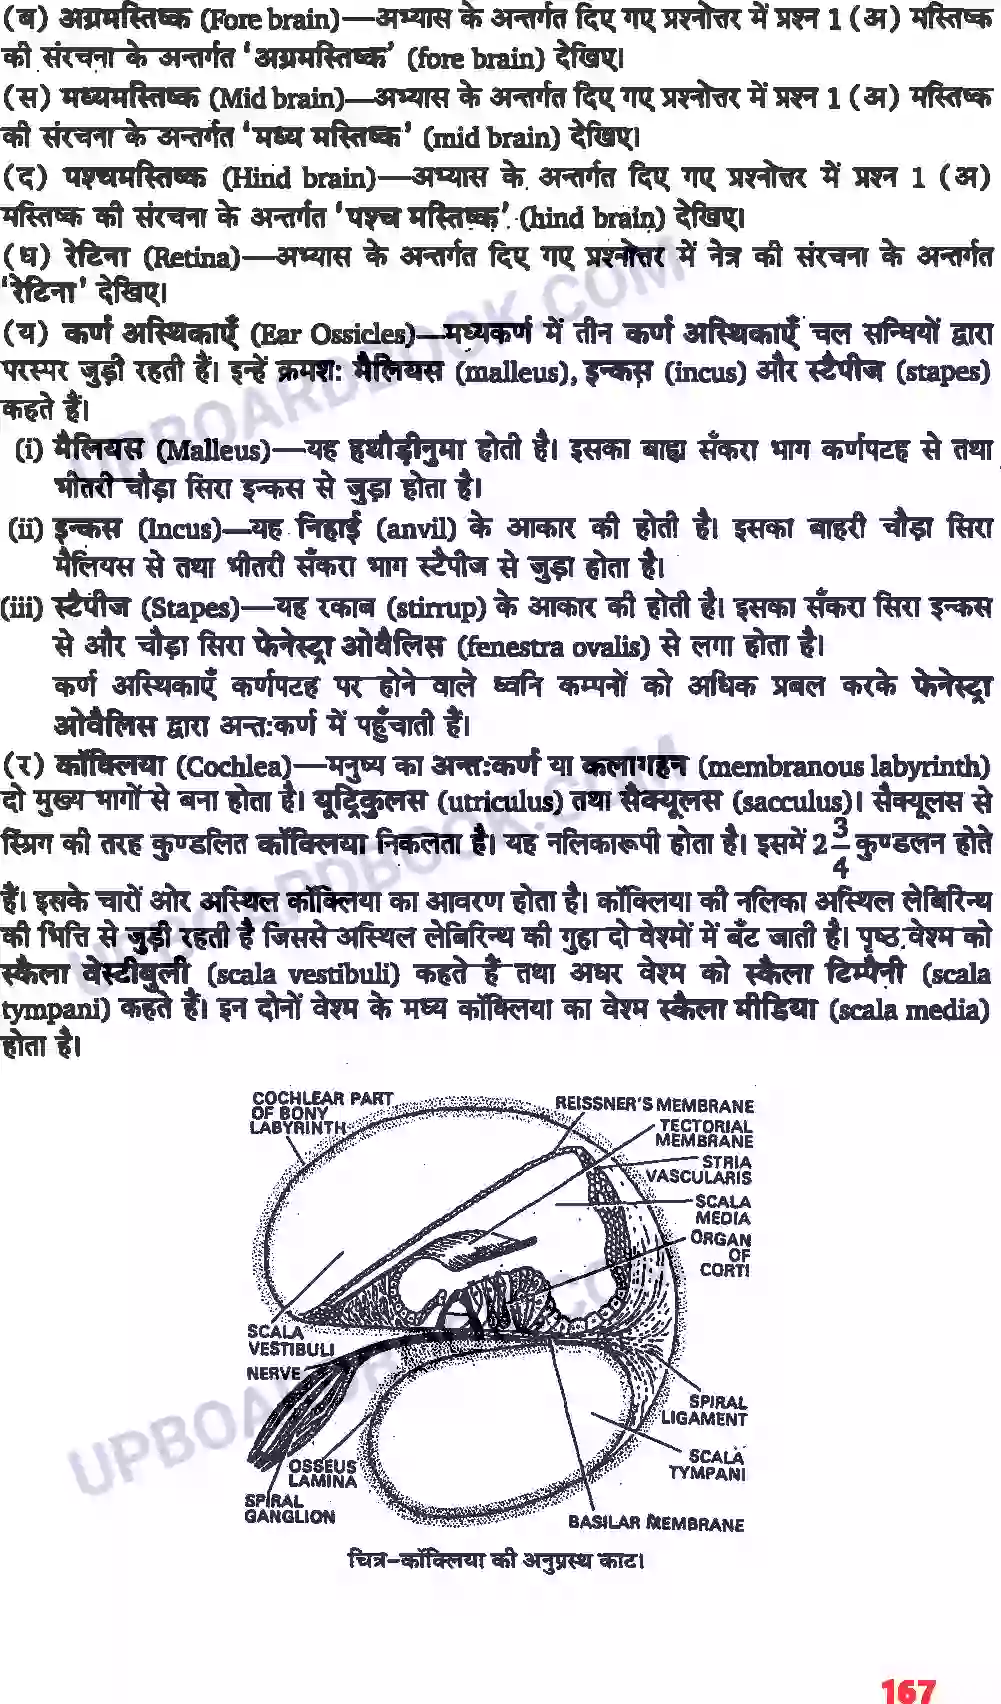 (ब) अग्रमस्तिष्क (Fore brain)—अभ्यास के अन्तर्गत दिए गए प्रश्नोत्तर में प्रश्न 1 (अ) मस्तिष्क
की संरचना के अन्तर्गत ‘अग्रमस्तिष्क’ (fore brain) देखिए।
(स) मध्यमस्तिष्क (Mid brain)—अभ्यास के अन्तर्गत दिए गए प्रश्नोत्तर में प्रश्न 1 (अ) मस्तिष्क
की संरचना के अन्तर्गत ‘मध्य मस्तिष्क’ (mid brain) देखिए।
(द) पश्चमस्तिष्क (Hind brain)—अभ्यास के अन्तर्गत दिए गए प्रश्नोत्तर में प्रश्न 1 (अ)
मस्तिष्क की संरचना के अन्तर्गत ‘पश्च मस्तिष्क’ (hind brain) देखिए।
(ध) रेटिना (Retina)—अभ्यास के अन्तर्गत दिए गए प्रश्नोत्तर में नेत्र की संरचना के अन्तर्गत
‘रेटिना’ देखिए।
(य) कर्ण अस्थिकाएँ (Ear Ossicles)—मध्यकर्ण में तीन कर्ण अस्थिकाएँ चल सन्धियों द्वारा
परस्पर जुड़ी रहती हैं। इन्हें क्रमश: मैलियस (malleus), इन्कस (incus) और स्टैपीज (stapes)
कहते हैं।
(i) मैलियस (Malleus)—यह हथौड़ीनुमा होती है। इसका बाह्य सँकरा भाग कर्णपटह से तथा
भीतरी चौड़ा सिरा इन्कस से जुड़ा होता है।
(ii) इन्कस (Incus)—यह निहाई (anvil) के आकार की होती है। इसका बाहरी चौड़ा सिरा
मैलियस से तथा भीतरी सँकरा भाग स्टैपीज से जुड़ा होता है।
(iii) स्टैपीज (Stapes)—यह रकाब (stirrup) के आकार की होती है। इसका सँकरा सिरा इन्कस
से और चौड़ा सिरा फेनेस्ट्रा ओवैलिस (fenestra ovalis) से लगा होता है।
कर्ण अस्थिकाएँ कर्णपटह पर होने वाले ध्वनि कम्पनों को अधिक प्रबल करके फेनेस्ट्रा
ओवैलिस द्वारा अन्त:कर्ण में पहुँचाती हैं।
(र) कॉक्लिया (Cochlea)—मनुष्य का अन्त:कर्ण या कलागहन (membranous labyrinth)
दो मुख्य भागों से बना होता है। यूट्रिकुलस (utriculus) तथा सैक्यूलस (sacculus)। सैक्यूलस से
स्प्रिंग की तरह कुण्डलित कॉक्लिया निकलता है। यह नलिकारूपी होता है। इसमें 2 3/4 कुण्डलन होते
हैं। इसके चारों ओर अस्थिल कॉक्लिया का आवरण होता है। कॉक्लिया की नलिका अस्थिल लेबिरिन्थ
की भित्ति से जुड़ी रहती है जिससे अस्थिल लेबिरिन्थ की गुहा दो वेश्मों में बँट जाती है। पृष्ठ वेश्म को
स्कैला वेस्टीबुली (scala vestibuli) कहते हैं तथा अधर वेश्म को स्कैला टिम्पैनी (scala
tympani) कहते हैं। इन दोनों वेश्म के मध्य कॉक्लिया का वेश्म स्कैला मीडिया (scala media)
होता है।
COCHLEAR PART
OF BONY
LABYRINTH
REISSNER'S MEMBRANE
TECTORIAL
MEMBRANE
STRIA
VASCULARIS
SCALA
MEDIA
ORGAN
OF
CORTI
SCALA
VESTIBULI
NERVE
SPIRAL
LIGAMENT
SCALA
TYMPANI
OSSEUS
LAMINA
SPIRAL
GANGLION
BASILAR MEMBRANE
चित्र–कॉक्लिया की अनुप्रस्थ काट।
167
UPBOARDBOOK.COM
UPBOARDBOOK.COM
UPBOARDBOOK.COM